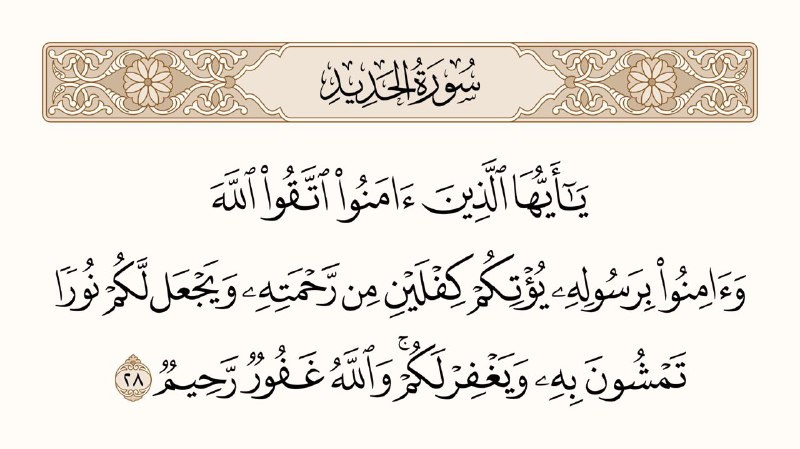 سُورَةُ الحَدِيدِ
يَـٰٓأَيُّهَا ٱلَّذِينَ ءَامَنُوا۟ ٱتَّقُوا۟ ٱللَّهَ
وَءَامِنُوا۟ بِرَسُولِهِۦ يُؤْتِكُمْ كِفْلَيْنِ مِن رَّحْمَتِهِۦ وَيَجْعَل لَّكُمْ نُورًا
تَمْشُونَ بِهِۦ وَيَغْفِرْ لَكُمْ ۚ وَٱللَّهُ غَفُورٌ رَّحِيمٌ ٢٨